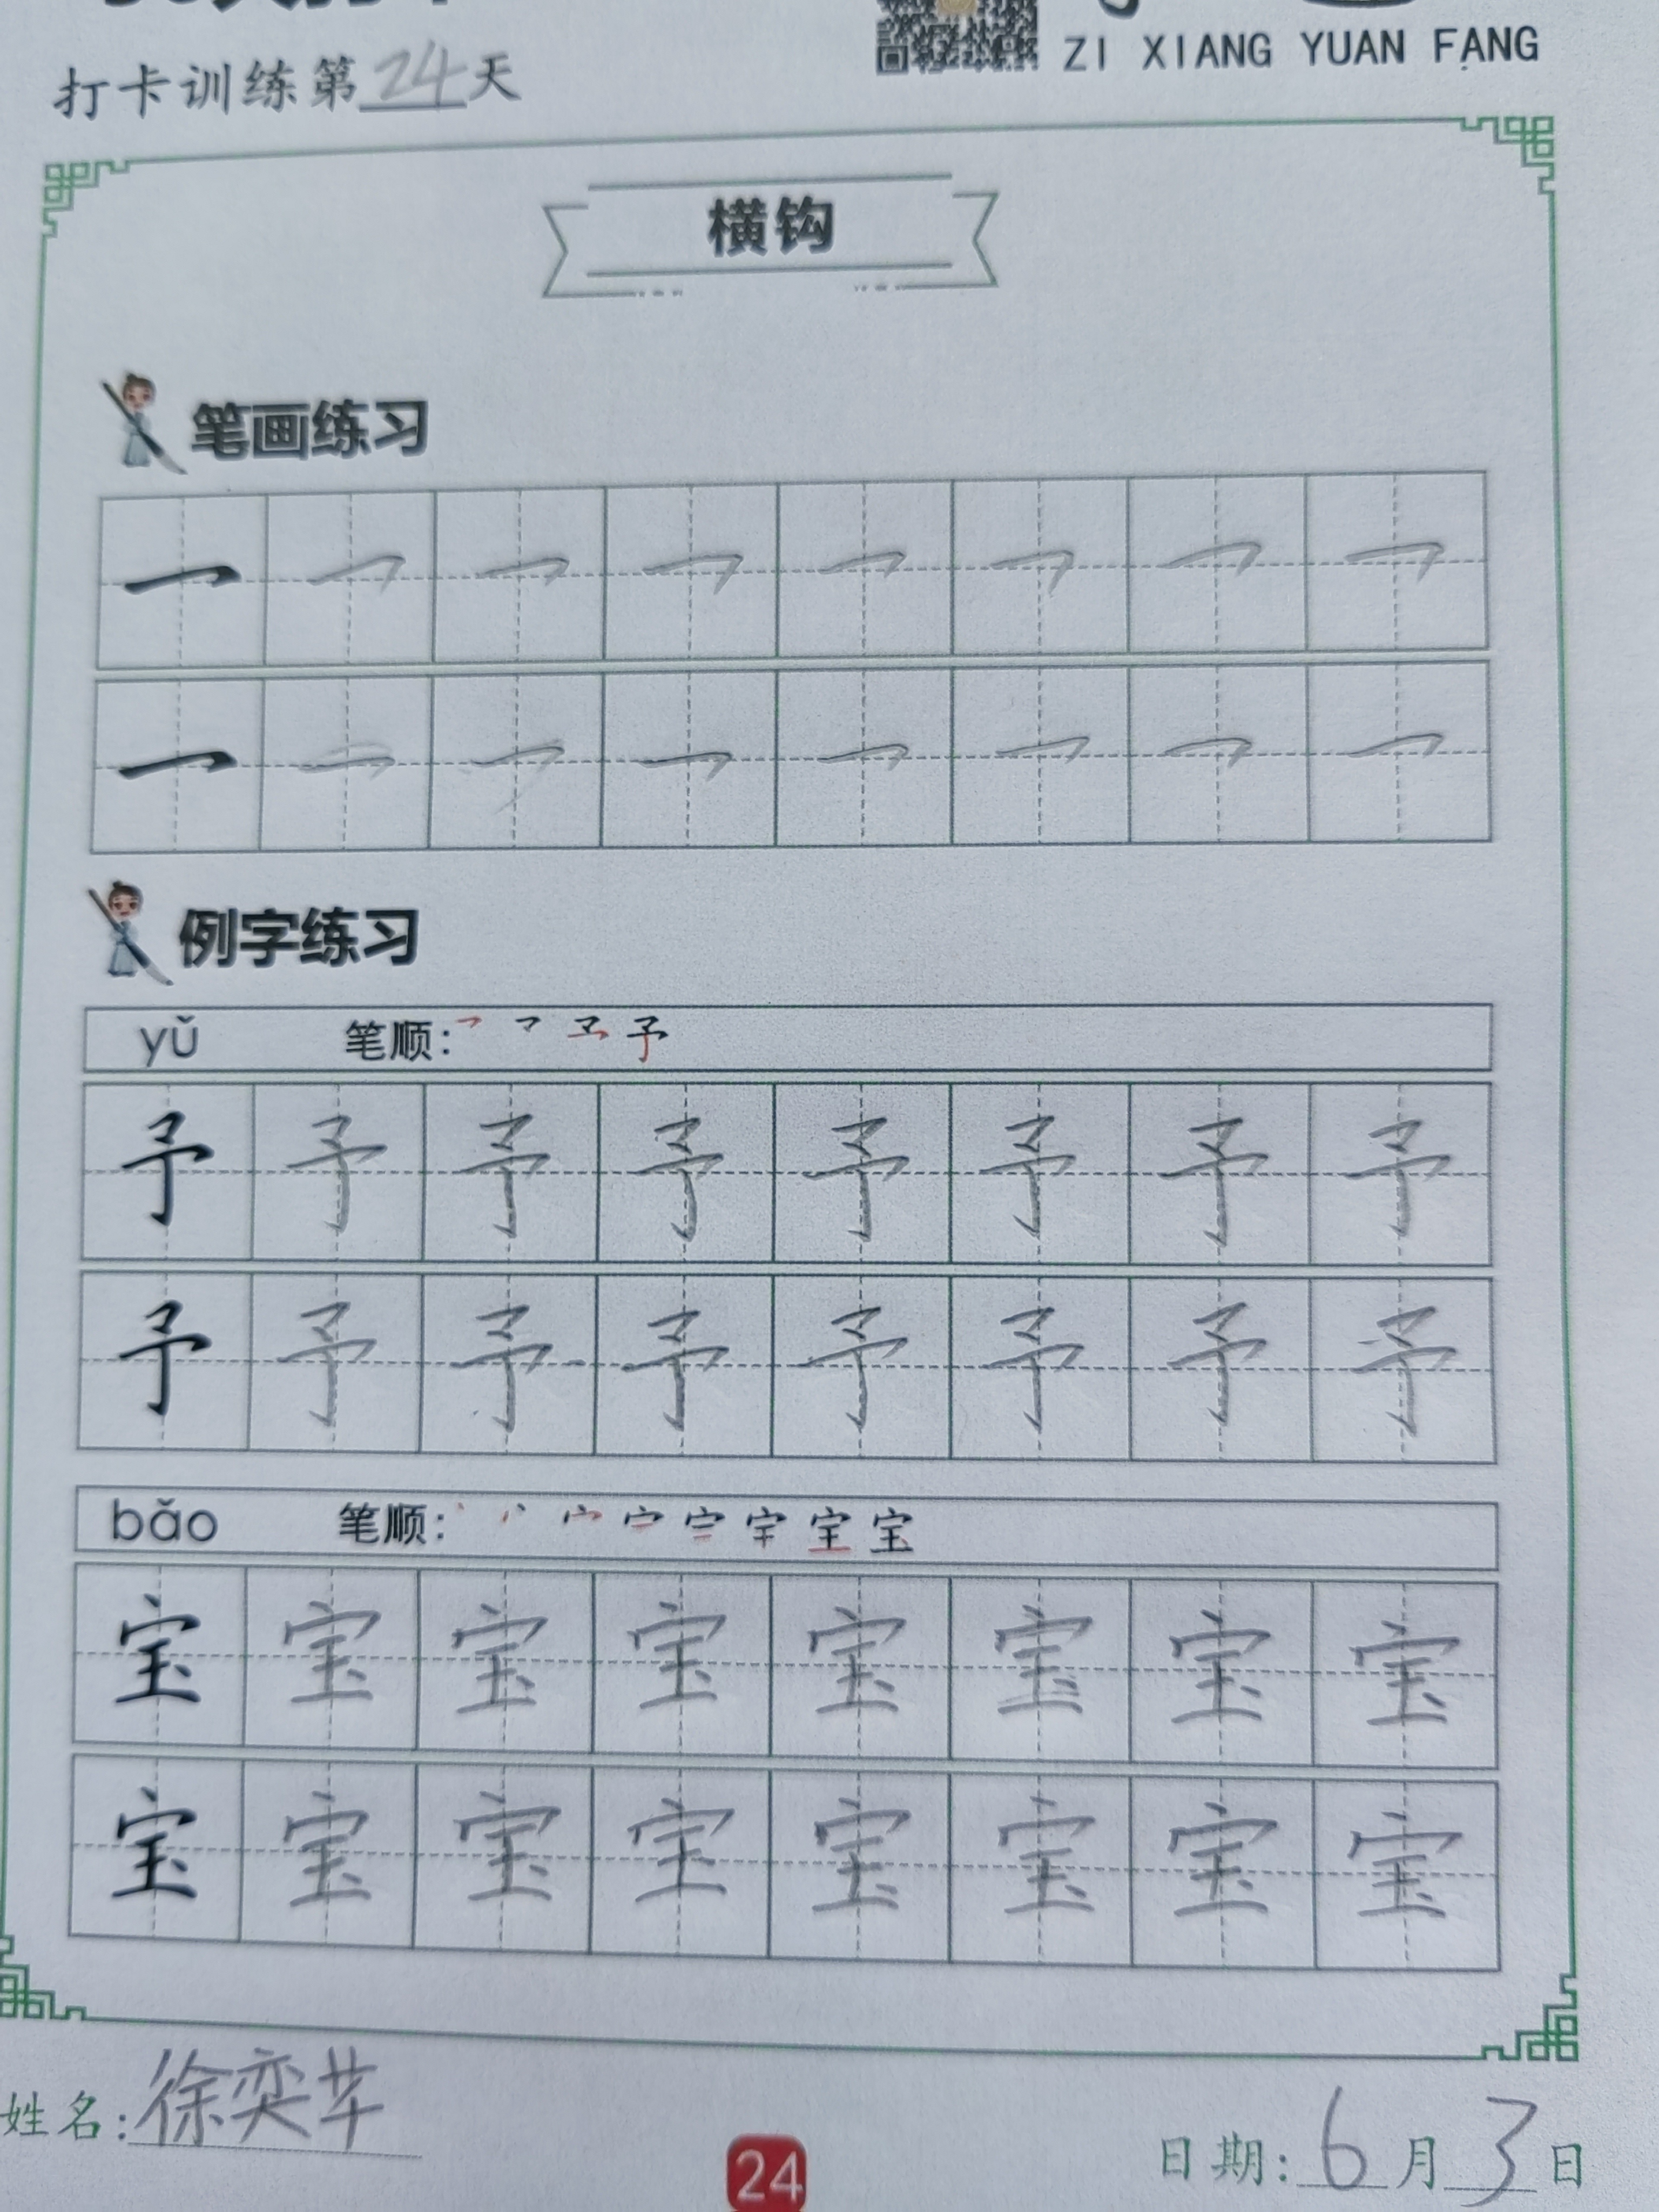 打卡训练第24天
ZI XIANG YUAN FANG
横钩
笔画练习
例字练习
yǔ 笔顺:
予 予 予 予 予 予 予 予
予 予 予 予 予 予 予 予
bǎo 笔顺:
宝 宝 宝 宝 宝 宝 宝 宝
宝 宝 宝 宝 宝 宝 宝 宝
姓名:徐奕芊
24
日期:6月3日